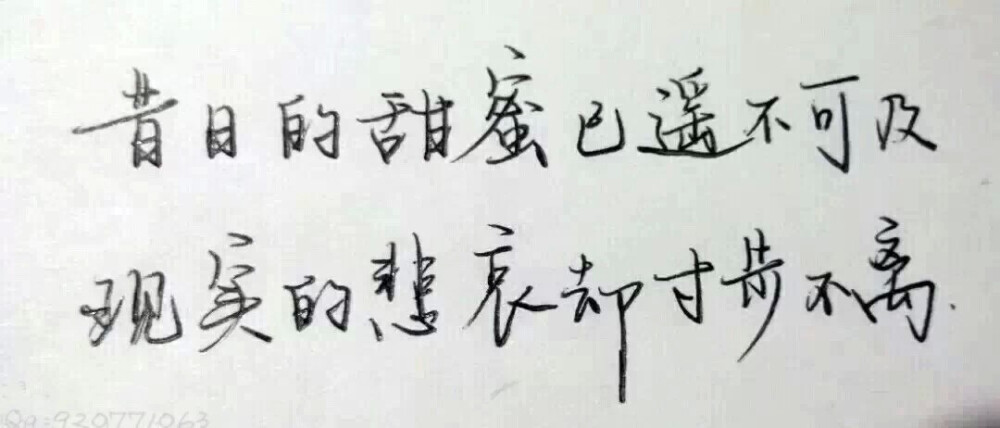 昔日的甜蜜已遥不可及
现实的悲哀却寸步不离.
QQ:920771063